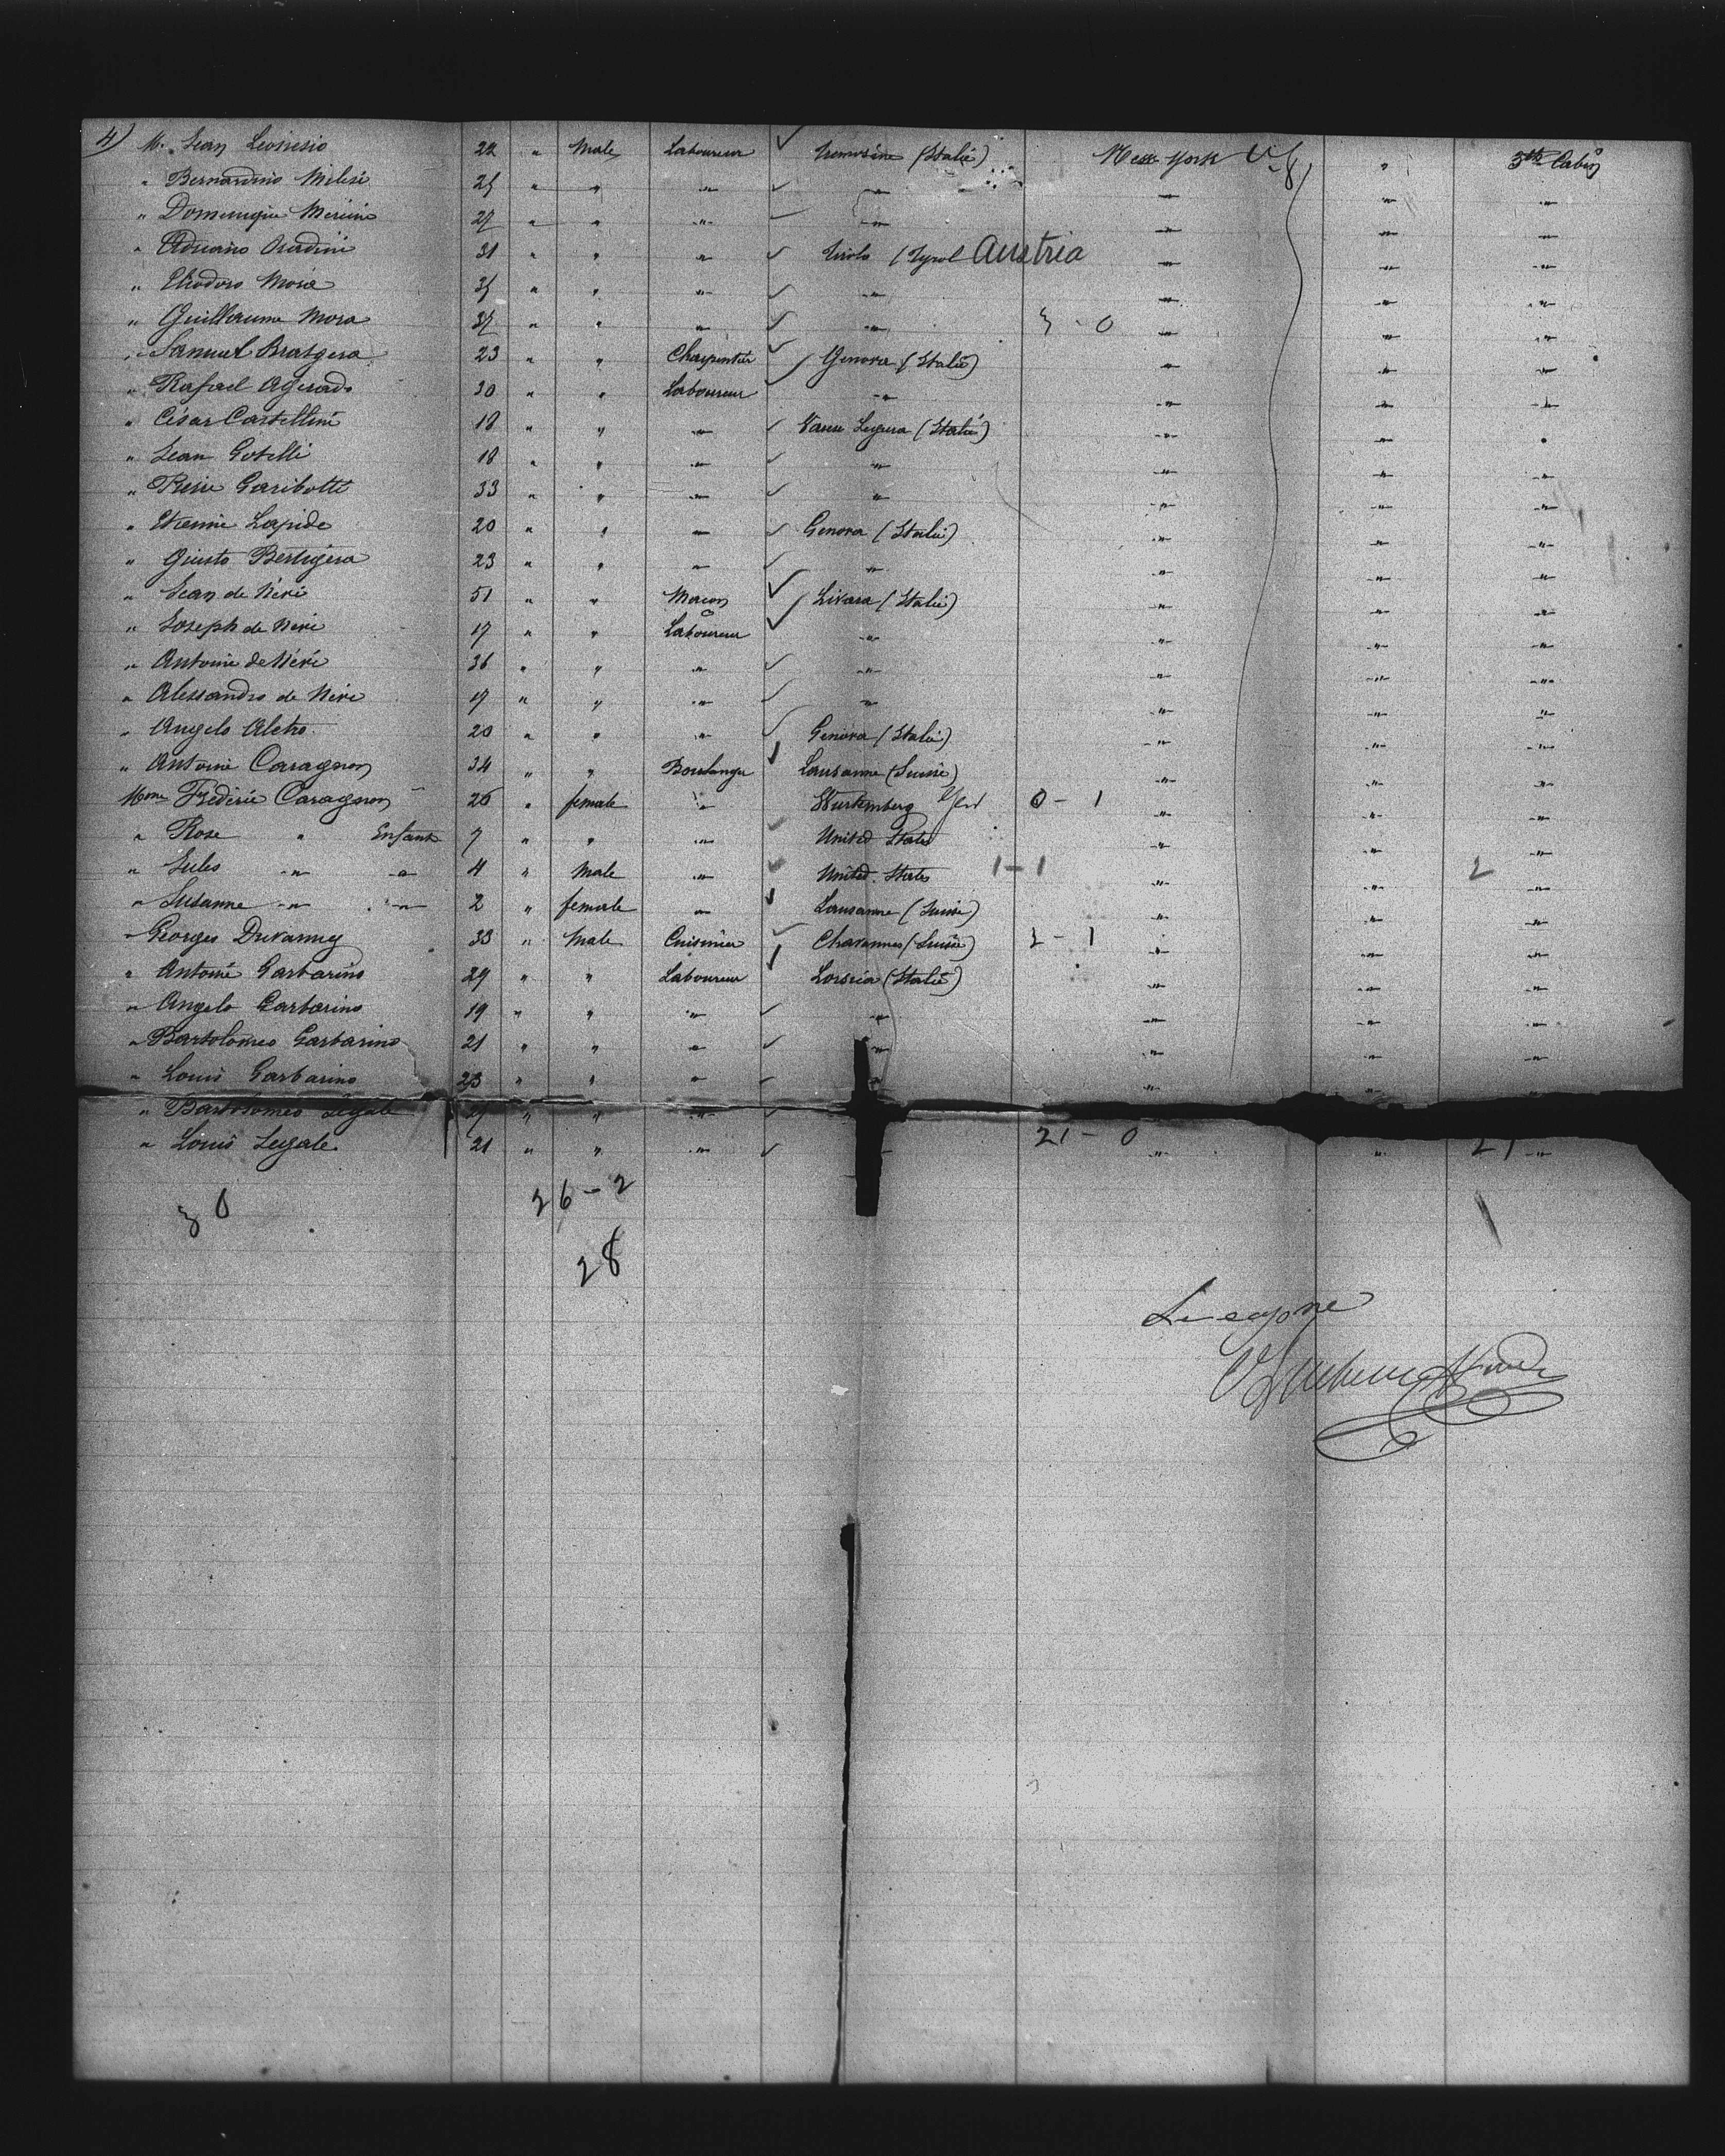 4) M. Jean Leonesio 22 " Male Laboureur Tremosine (Italie) New-York U.S. " 3th Cabin
" Bernardino Milesi 25 " " " " " " "
" Domenique Mericio 27 " " " " " " "
" Adriano Oradini 31 " " " Tirolo (Tyrol Austria " " "
" Eliodoro Mora 35 " " " " " " "
" Guillaume Mora 37 " " " " 3 - 0 " " "
" Samuel Bratgera 23 " " Charpentier Genova (Italie) " " "
" Rafael 30 " " Laboureur " " " "
" César Castellini 18 " " " Varese Legura (Italie) " " "
" Jean Gotelli 18 " " " " " " "
" Garibotti 33 " " " " " " "
" Etienne Lapide 20 " " " Genova (Italie) " " "
" Giusto Bertigera 23 " " " " " " "
" Jean de Néri 51 " " Maçon Livara (Italie) " " "
" Joseph de Neri 17 " " Laboureur " " " "
" Antoine de Néri 36 " " " " " " "
" Alessandro de Neri 17 " " " " " " "
" Angelo Aletro 20 " " " Genova (Italie) " " "
" Antoine Caragnon 34 " " Boulanger Lausanne (Suisse) " " "
Mme Fréderic Caragnon 26 " female " Wurtemberg 0 - 1 " " "
" Rose " Enfant 7 " " " United States " " "
" Jules " " 4 " Male " United States 1 - 1 " " 2 "
" Susanne " " 2 " female " Lausanne (Suisse) " " "
" Georges Duvanney 33 " Male Cuisinier Chavannes (Suisse) 2 - 1 " " "
" Antoine Garbarino 29 " " Laboureur Lorsica (Italie) " " "
" Angelo Garbarino 19 " " " " " " "
" Bartolomeo Garbarino 21 " " " " " " "
" Louis Garbarino 23 " " " " " "
" Bartolomeo Legale 27 " " "
" Louis Legale 21 " " " 21 - 0 " " 21 "
30 26 - 2
28